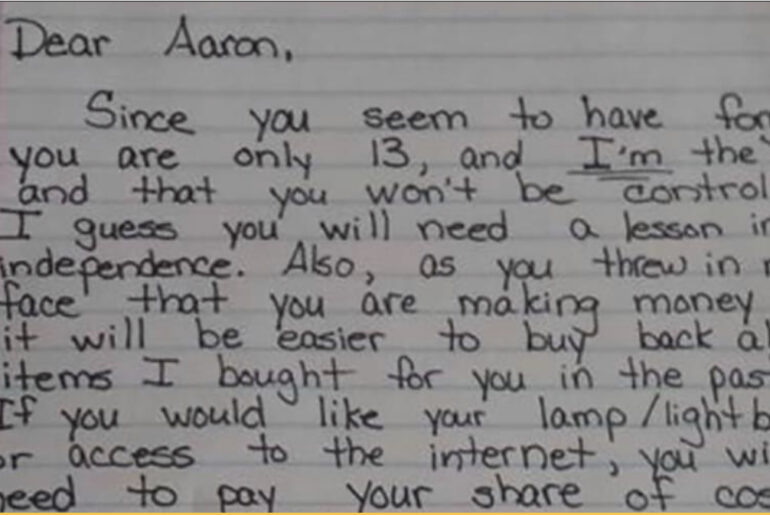 Dear Aaron,
Since you seem to have
you are only 13, and I'm the
and that you won't be
I guess you will need a lesson
independence. Also, as you threw in
face that you are making money
it will be easier to buy back
items I bought for you in the
If you would like your
or access to the internet, you
need to pay your share of